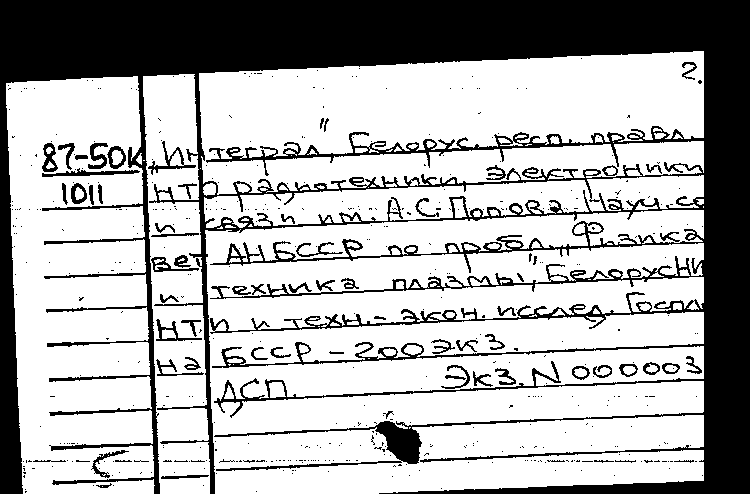 2.
87-50К „Интеграл", Белорус. респ. правл.
1011 НТО радиотехники, электроники
и связи им. А.С. Попова, Науч. со
вет АН БССР по пробл. „Физика
и техника плазмы", БелорусНИ
НТИ и техн.-экон. исслед. Госпла
на БССР. - 200 экз.
ДСП. Экз. N 000003